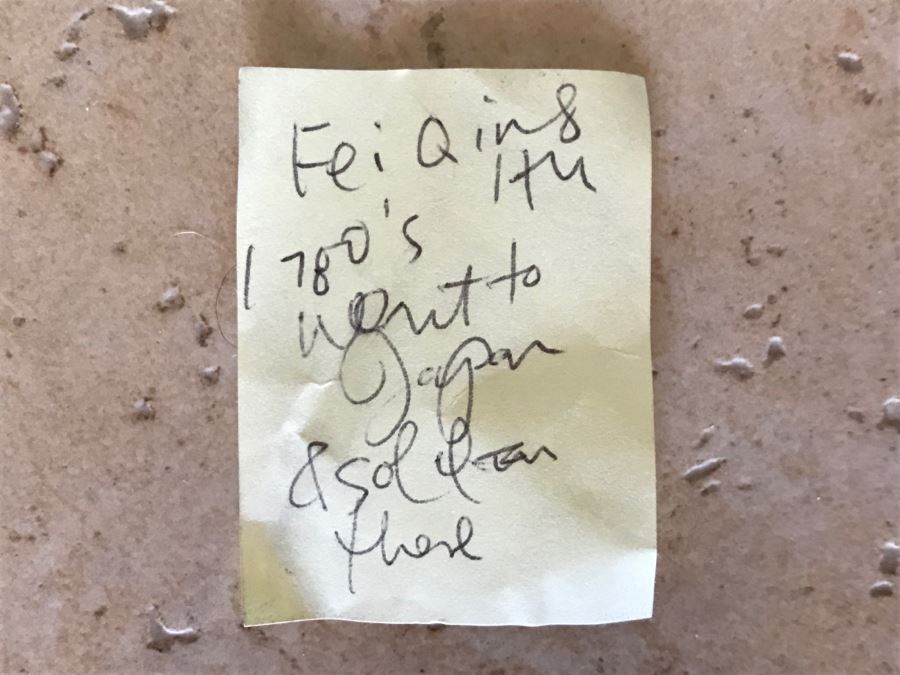 Fei Qing
Hu
1780's
went to
Japan
& sold
there